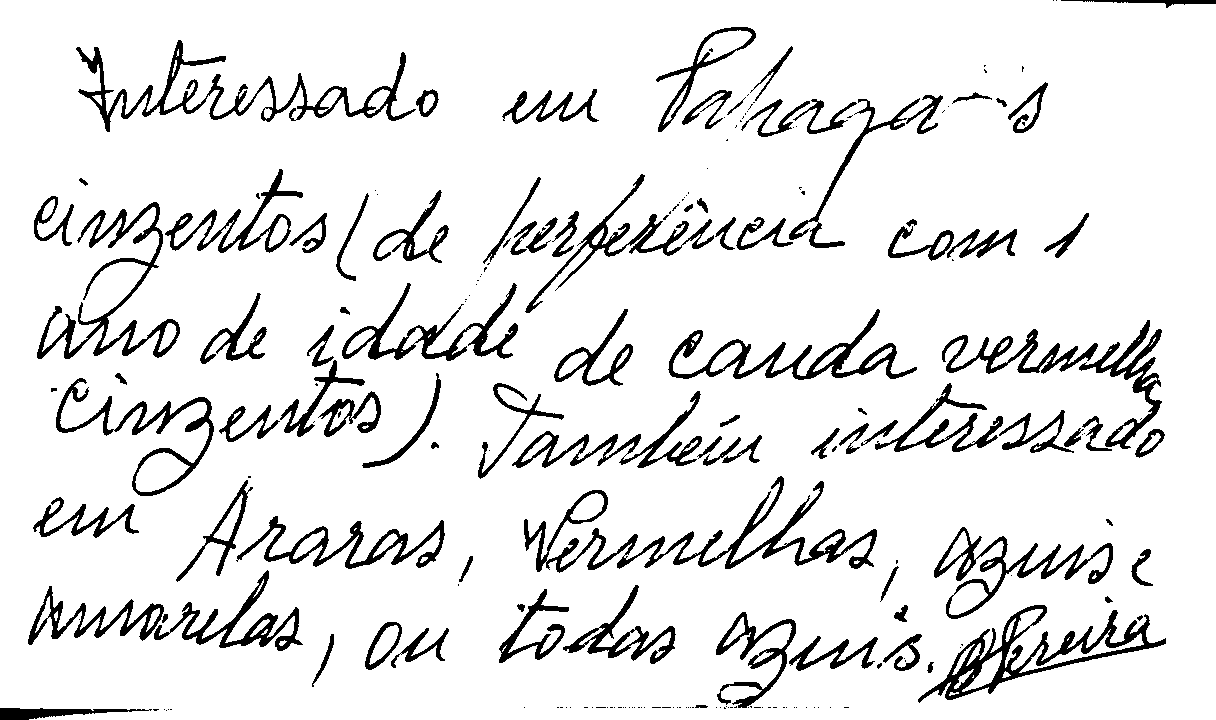 Interessado em Papagais
cinzentos (de perferência com 1
ano de idade de cauda vermelha
cinzentos). Também interessado
em Araras, Vermelhas, azuis e
amarelas, ou todas azuis. B Pereira